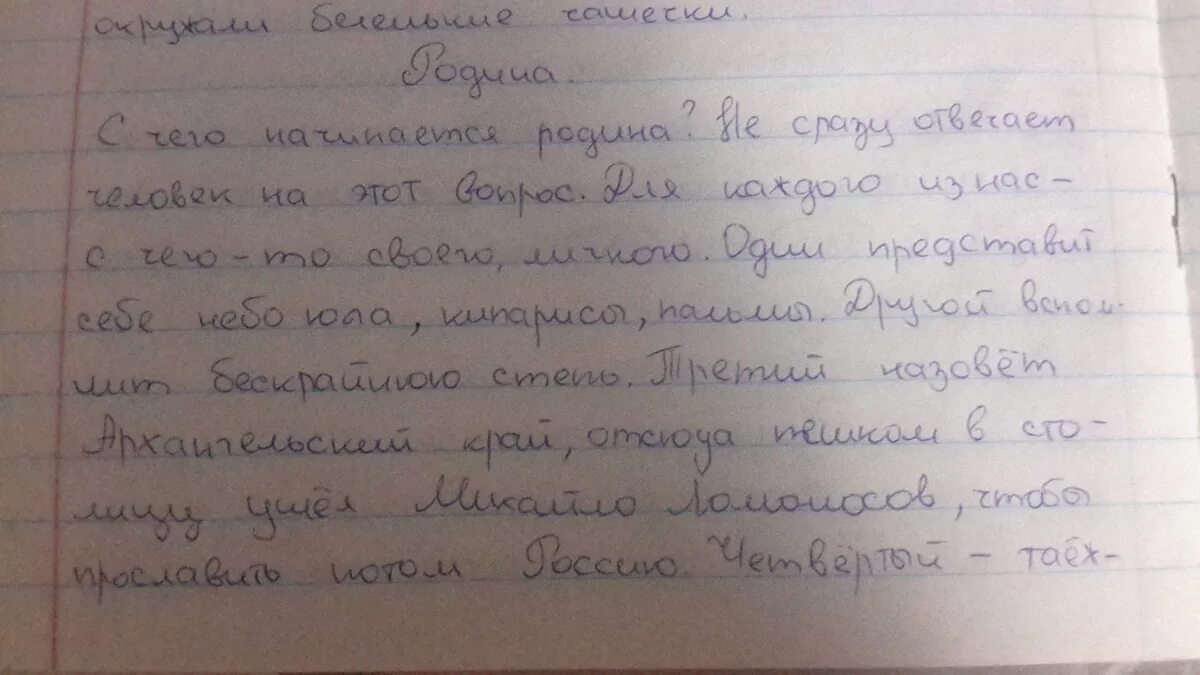 окружали беленькие чашечки.
Родина.
С чего начинается родина? Не сразу отвечает
человек на этот вопрос. Для каждого из нас –
с чего-то своего, личного. Один представит
себе небо юга, кипарисы, пальмы. Другой вспом-
нит бескрайнюю степь. Третий назовёт
Архангельский край, отсюда пешком в сто-
лицу ушёл Михайло Ломоносов, чтобы
прославить потом Россию. Четвёртый – таёж-